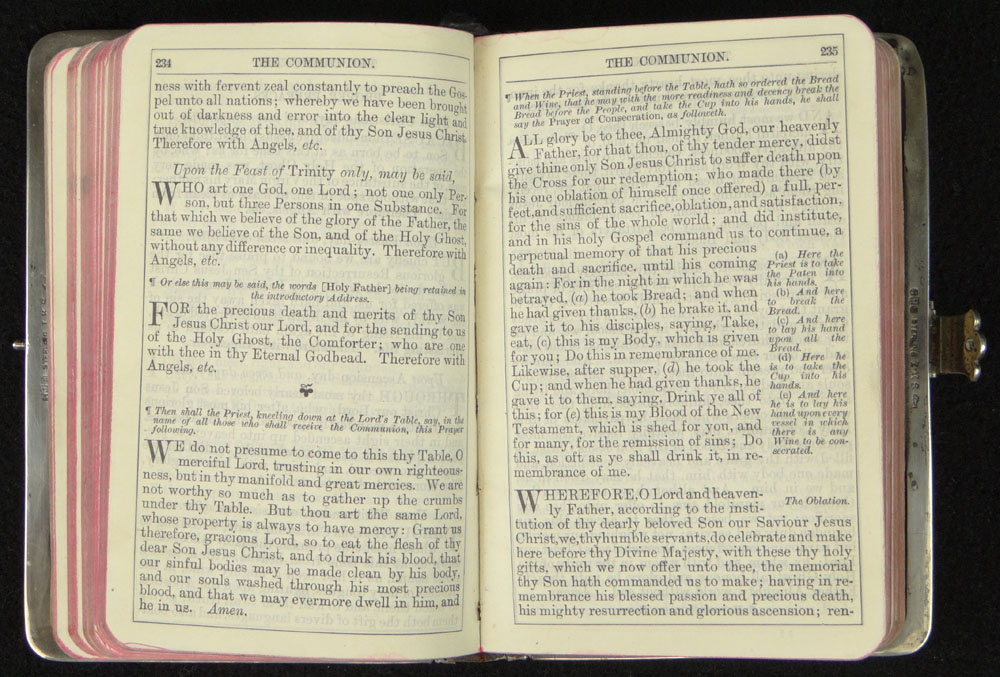 234 THE COMMUNION.
ness with fervent zeal constantly to preach the Gos-
pel unto all nations; whereby we have been brought
out of darkness and error into the clear light and
true knowledge of thee, and of thy Son Jesus Christ.
Therefore with Angels, etc.
Upon the Feast of Trinity only, may be said,
WHO art one God, one Lord; not one only Per-
son, but three Persons in one Substance. For
that which we believe of the glory of the Father, the
same we believe of the Son, and of the Holy Ghost,
without any difference or inequality. Therefore with
Angels, etc.
¶ Or else this may be said, the words [Holy Father] being retained in
the introductory Address.
FOR the precious death and merits of thy Son
Jesus Christ our Lord, and for the sending to us
of the Holy Ghost, the Comforter; who are one
with thee in thy Eternal Godhead. Therefore with
Angels, etc.
¶ Then shall the Priest, kneeling down at the Lord's Table, say, in the
name of all those who shall receive the Communion, this Prayer
following.
WE do not presume to come to this thy Table, O
merciful Lord, trusting in our own righteous-
ness, but in thy manifold and great mercies. We are
not worthy so much as to gather up the crumbs
under thy Table. But thou art the same Lord,
whose property is always to have mercy: Grant us
therefore, gracious Lord, so to eat the flesh of thy
dear Son Jesus Christ, and to drink his blood, that
our sinful bodies may be made clean by his body,
and our souls washed through his most precious
blood, and that we may evermore dwell in him, and
he in us. Amen.
THE COMMUNION. 235
¶ When the Priest, standing before the Table, hath so ordered the Bread
and Wine, that he may with the more readiness and decency break the
Bread before the People, and take the Cup into his hands, he shall
say the Prayer of Consecration, as followeth.
ALL glory be to thee, Almighty God, our heavenly
Father, for that thou, of thy tender mercy, didst
give thine only Son Jesus Christ to suffer death upon
the Cross for our redemption; who made there (by
his one oblation of himself once offered) a full, per-
fect, and sufficient sacrifice, oblation, and satisfaction,
for the sins of the whole world; and did institute,
and in his holy Gospel command us to continue, a
perpetual memory of that his precious
death and sacrifice, until his coming
again: For in the night in which he was
betrayed, (a) he took Bread; and when
he had given thanks, (b) he brake it, and
gave it to his disciples, saying, Take,
eat, (c) this is my Body, which is given
for you; Do this in remembrance of me.
Likewise, after supper, (d) he took the
Cup; and when he had given thanks, he
gave it to them, saying, Drink ye all of
this; for (e) this is my Blood of the New
Testament, which is shed for you, and
for many, for the remission of sins; Do
this, as oft as ye shall drink it, in re-
membrance of me.
(a) Here the
Priest is to take
the Paten into
his hands.
(b) And here
to break the
Bread.
(c) And here
to lay his hand
upon all the
Bread.
(d) Here he
is to take the
Cup into his
hands.
(e) And here
he is to lay his
hand upon every
vessel in which
there is any
Wine to be con-
secrated.
WHEREFORE, O Lord and heaven-
ly Father, according to the insti-
The Oblation.
tution of thy dearly beloved Son our Saviour Jesus
Christ, we, thy humble servants, do celebrate and make
here before thy Divine Majesty, with these thy holy
gifts, which we now offer unto thee, the memorial
thy Son hath commanded us to make; having in re-
membrance his blessed passion and precious death,
his mighty resurrection and glorious ascension; ren-